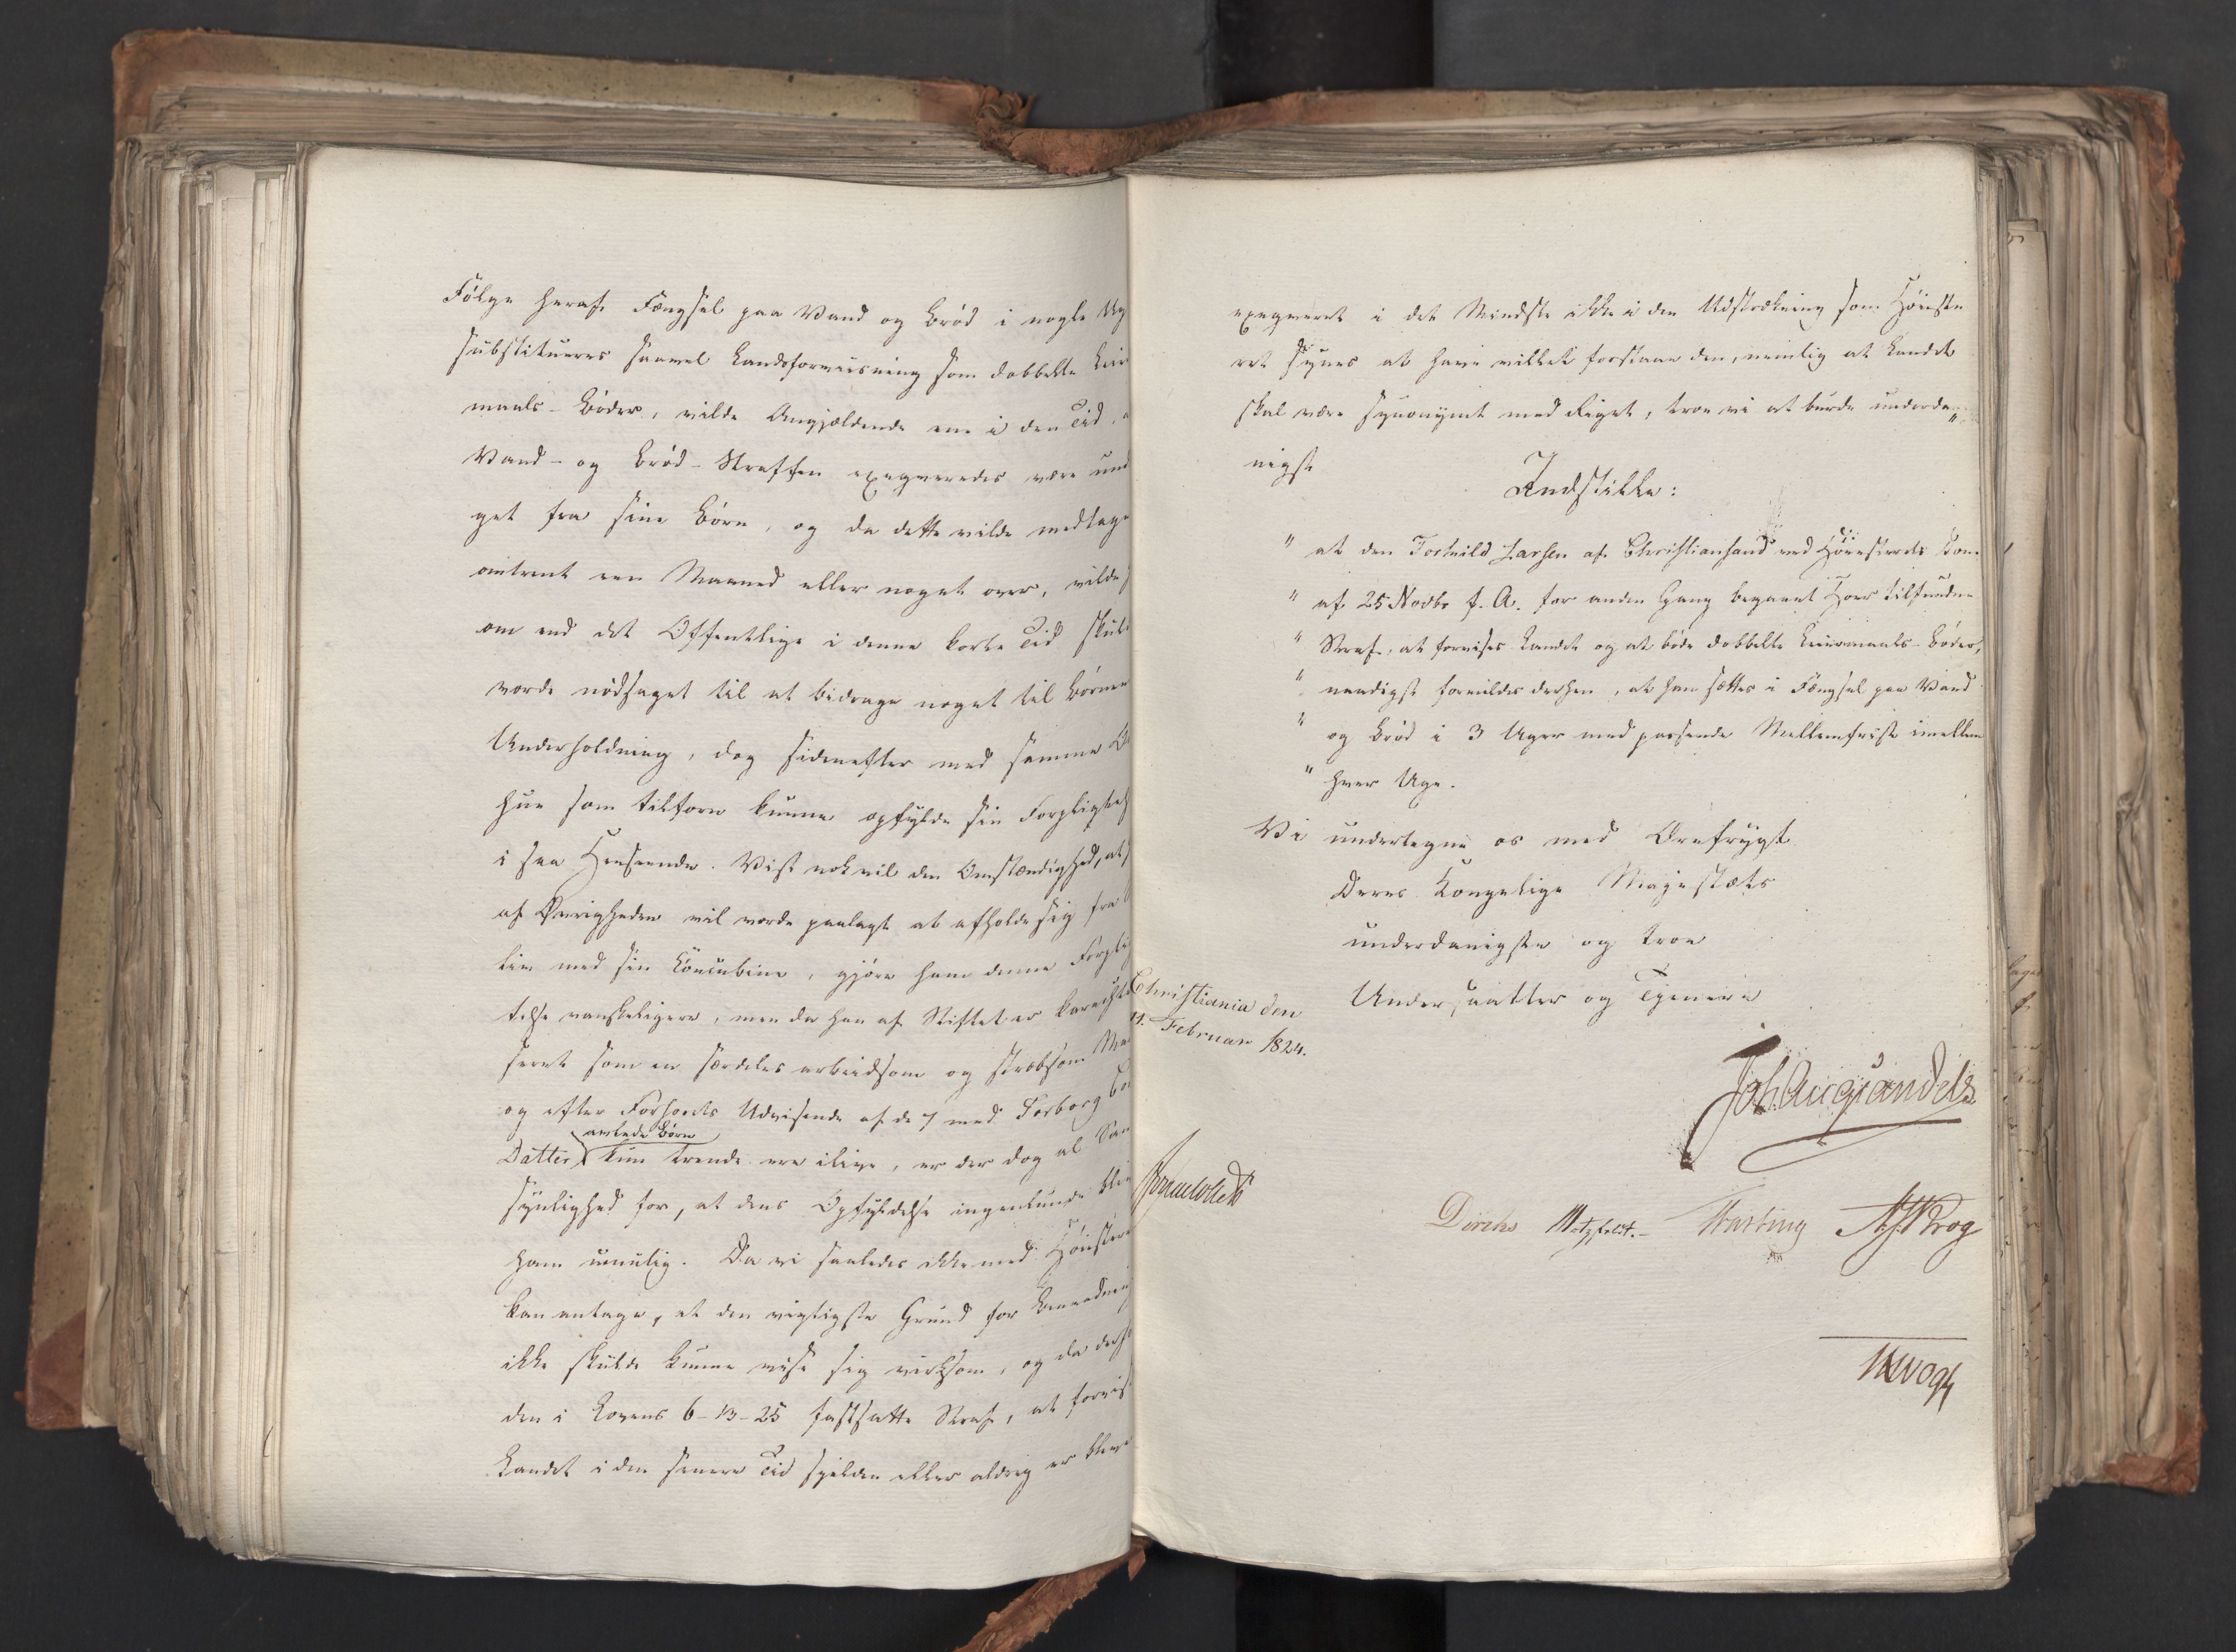 Følge heraf. Fængsel paa Vand og Brød i nogle Ug
substitueres saavel Landsforviisning som dobbelte Leier
maals-Bøder, vilde Angjældende ene i den Tid,
Vand- og Brød-Straffen exeqveredes være und
get fra sine Børn, og da dette vilde medtage
omtrent een Maaned eller noget over, vilde
om end det Offentlige i denne korte Tid skul
vorde nødsaget til at bidrage noget til Børnen
Underholdning, dog sidenefter med samme
hun som tilforn kunne opfylde sin Forpligtel
i saa Henseende. Vist nok vil den Omstændighed, at
af Øvrigheden vil vorde paalagt at afholde sig fra
liv med sin Concubine, gjøre ham denne Forpli
telse vanskeligere, men da han af Stiftet er karakte
seret som en særdeles arbeidsom og stræbsom Ma
og efter Forhørets Udvisende af de 7 med Torborg
avlede Børn
Datter kun trende ere ilive, er der dog al San
synlighed for, at dens Opfyldelse ingenlunde bli
ham umulig. Da vi saaledes ikke med Høieste
kan antage, at den vigtigste Grund for Benaadning
ikke skulde kunne vise sig virksom, og da derh
den i Lovens 6-13-25 fastsatte Straf, at forvis
Landet i den senere Tid sjelden eller aldrig er bleve
exeqveret i det Mindste ikke i den Udstrækning som Høieste
ret synes at have villet forstaae den, nemlig at Landet
skal være synonymt med Riget, troe vi at burde underda„
nigst
Indstille:
" at den Torkild Larsen af Christiansand ved Høiesterets Dom
" af 25 Novbr f. A. for anden Gang begaaet Hoer tilfundne
" Straf, at forvises Landet og at bøde dobbelte Leiermaals-Bøder,
" naadigst formildes derhen, at han sættes i Fængsel paa Vand
" og Brød i 3 Uger med passende Mellemfrist imellem
" hver Uge.
Vi undertegne os med Ærefrygt
Deres Kongelige Majestæts
underdanigste og troe
Undersaatter og Tjenere
Christiania den
11. Februar 1824.
Joh. Aug. Sandels
Diriks Motzfeldt. Fasting Krog